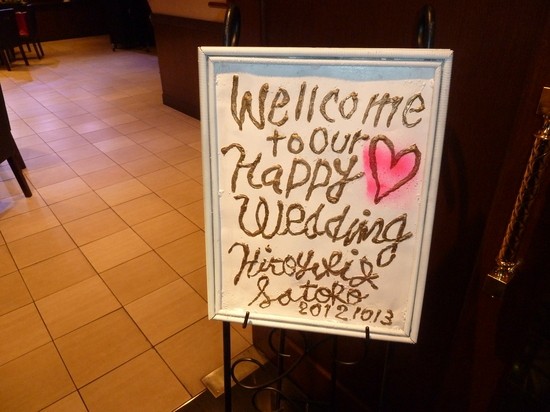 Wellcome
to our
Happy
Wedding
Hiroyuki &
Satoko
20121013